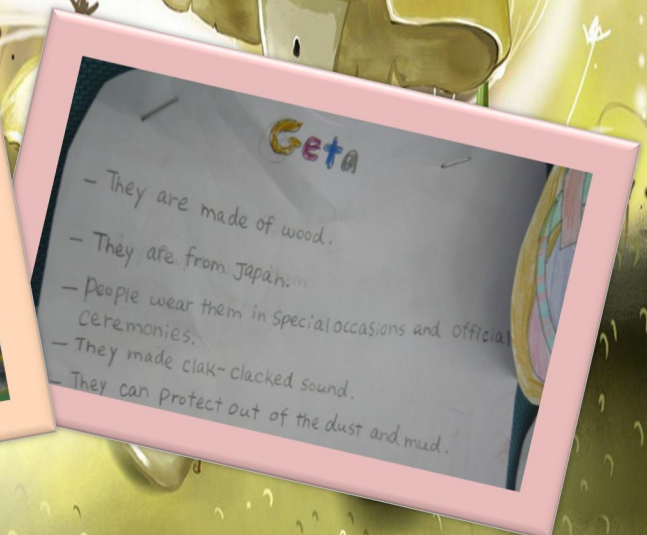 Geta
- They are made of wood.
- They are from Japan.
- People wear them in special occasions and official
ceremonies.
- They made clak-clacked sound.
- They can protect out of the dust and mud.